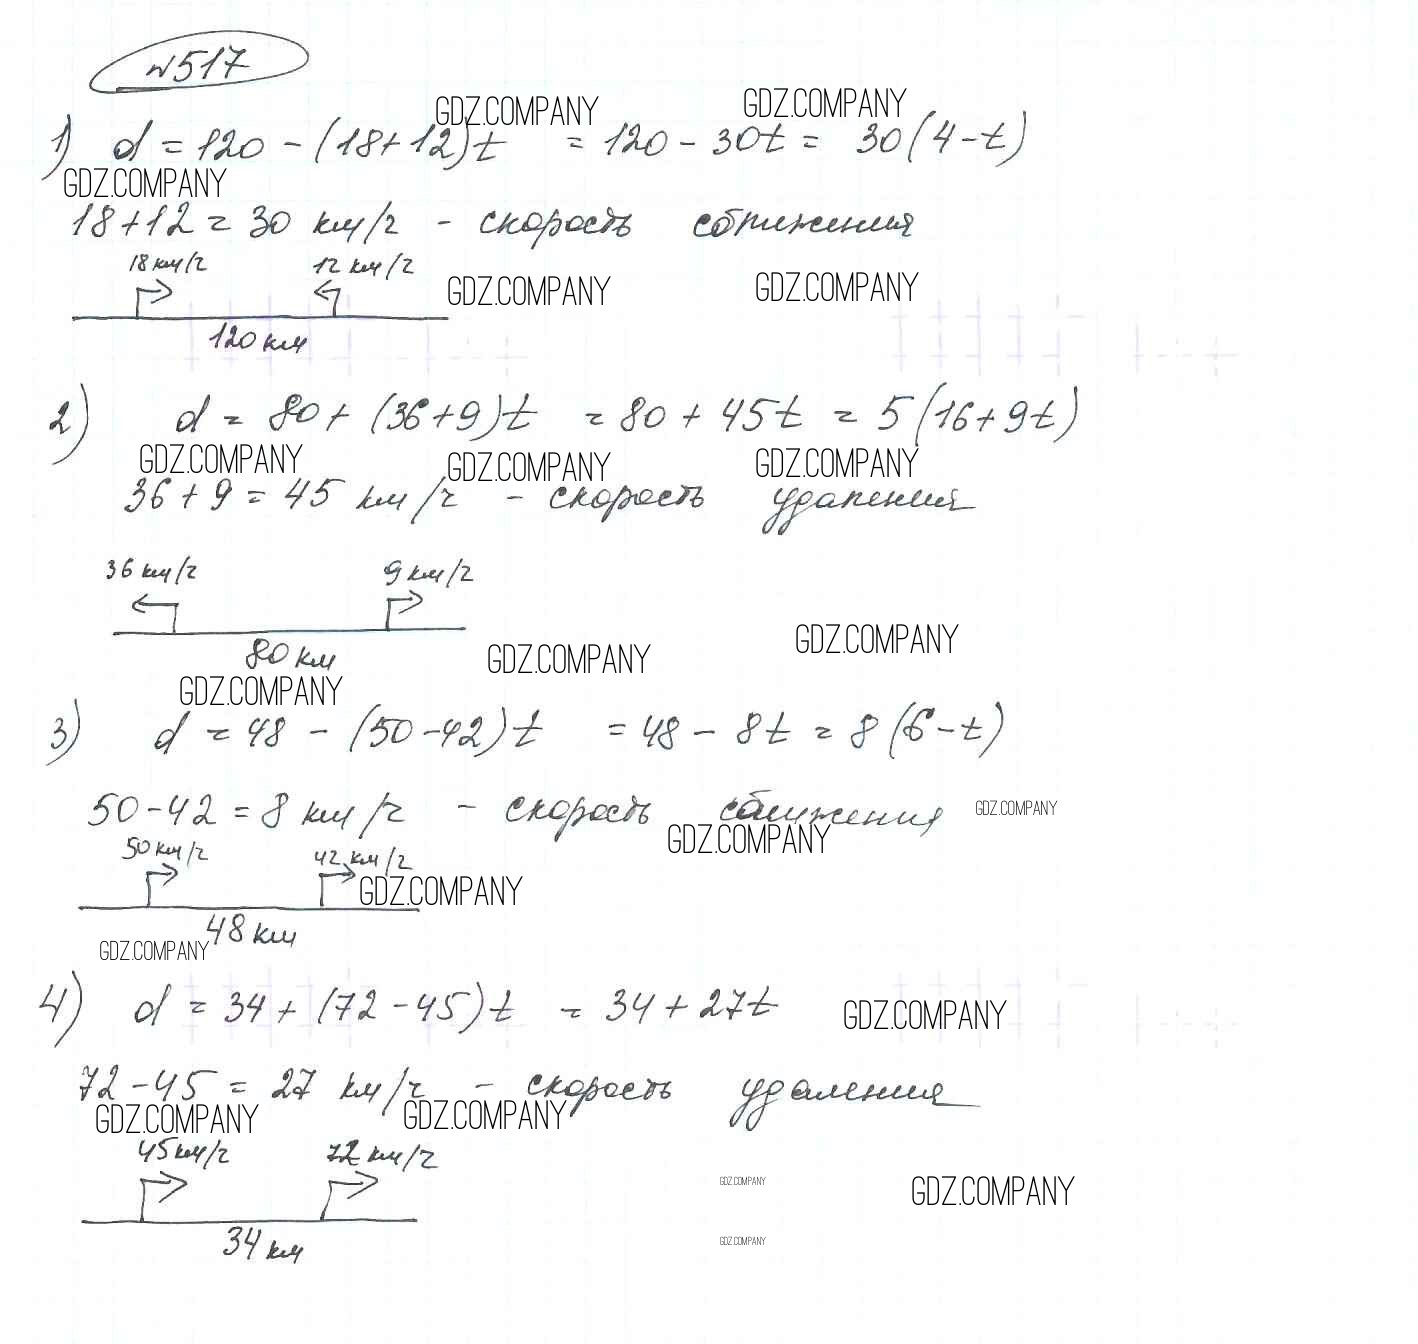 №517
GDZ.COMPANY GDZ.COMPANY
1) d = 120 - (18+12)t = 120 - 30t = 30(4-t)
GDZ.COMPANY
18+12 = 30 км/ч - скорость сближения
18 км/ч 12 км/ч
GDZ.COMPANY GDZ.COMPANY
120 км
2) d = 80 + (36+9)t = 80 + 45t = 5(16+9t)
GDZ.COMPANY GDZ.COMPANY GDZ.COMPANY
36 + 9 = 45 км/ч - скорость удаления
36 км/ч 9 км/ч
GDZ.COMPANY GDZ.COMPANY
80 км
GDZ.COMPANY
3) d = 48 - (50-42)t = 48 - 8t = 8(6-t)
50-42 = 8 км/ч - скорость сближения GDZ.COMPANY
GDZ.COMPANY
50 км/ч 42 км/ч
GDZ.COMPANY
48 км
GDZ.COMPANY
4) d = 34 + (72-45)t = 34 + 27t GDZ.COMPANY
72-45 = 27 км/ч - скорость удаления
GDZ.COMPANY GDZ.COMPANY
45 км/ч 72 км/ч
GDZ.COMPANY GDZ.COMPANY
34 км
GDZ.COMPANY